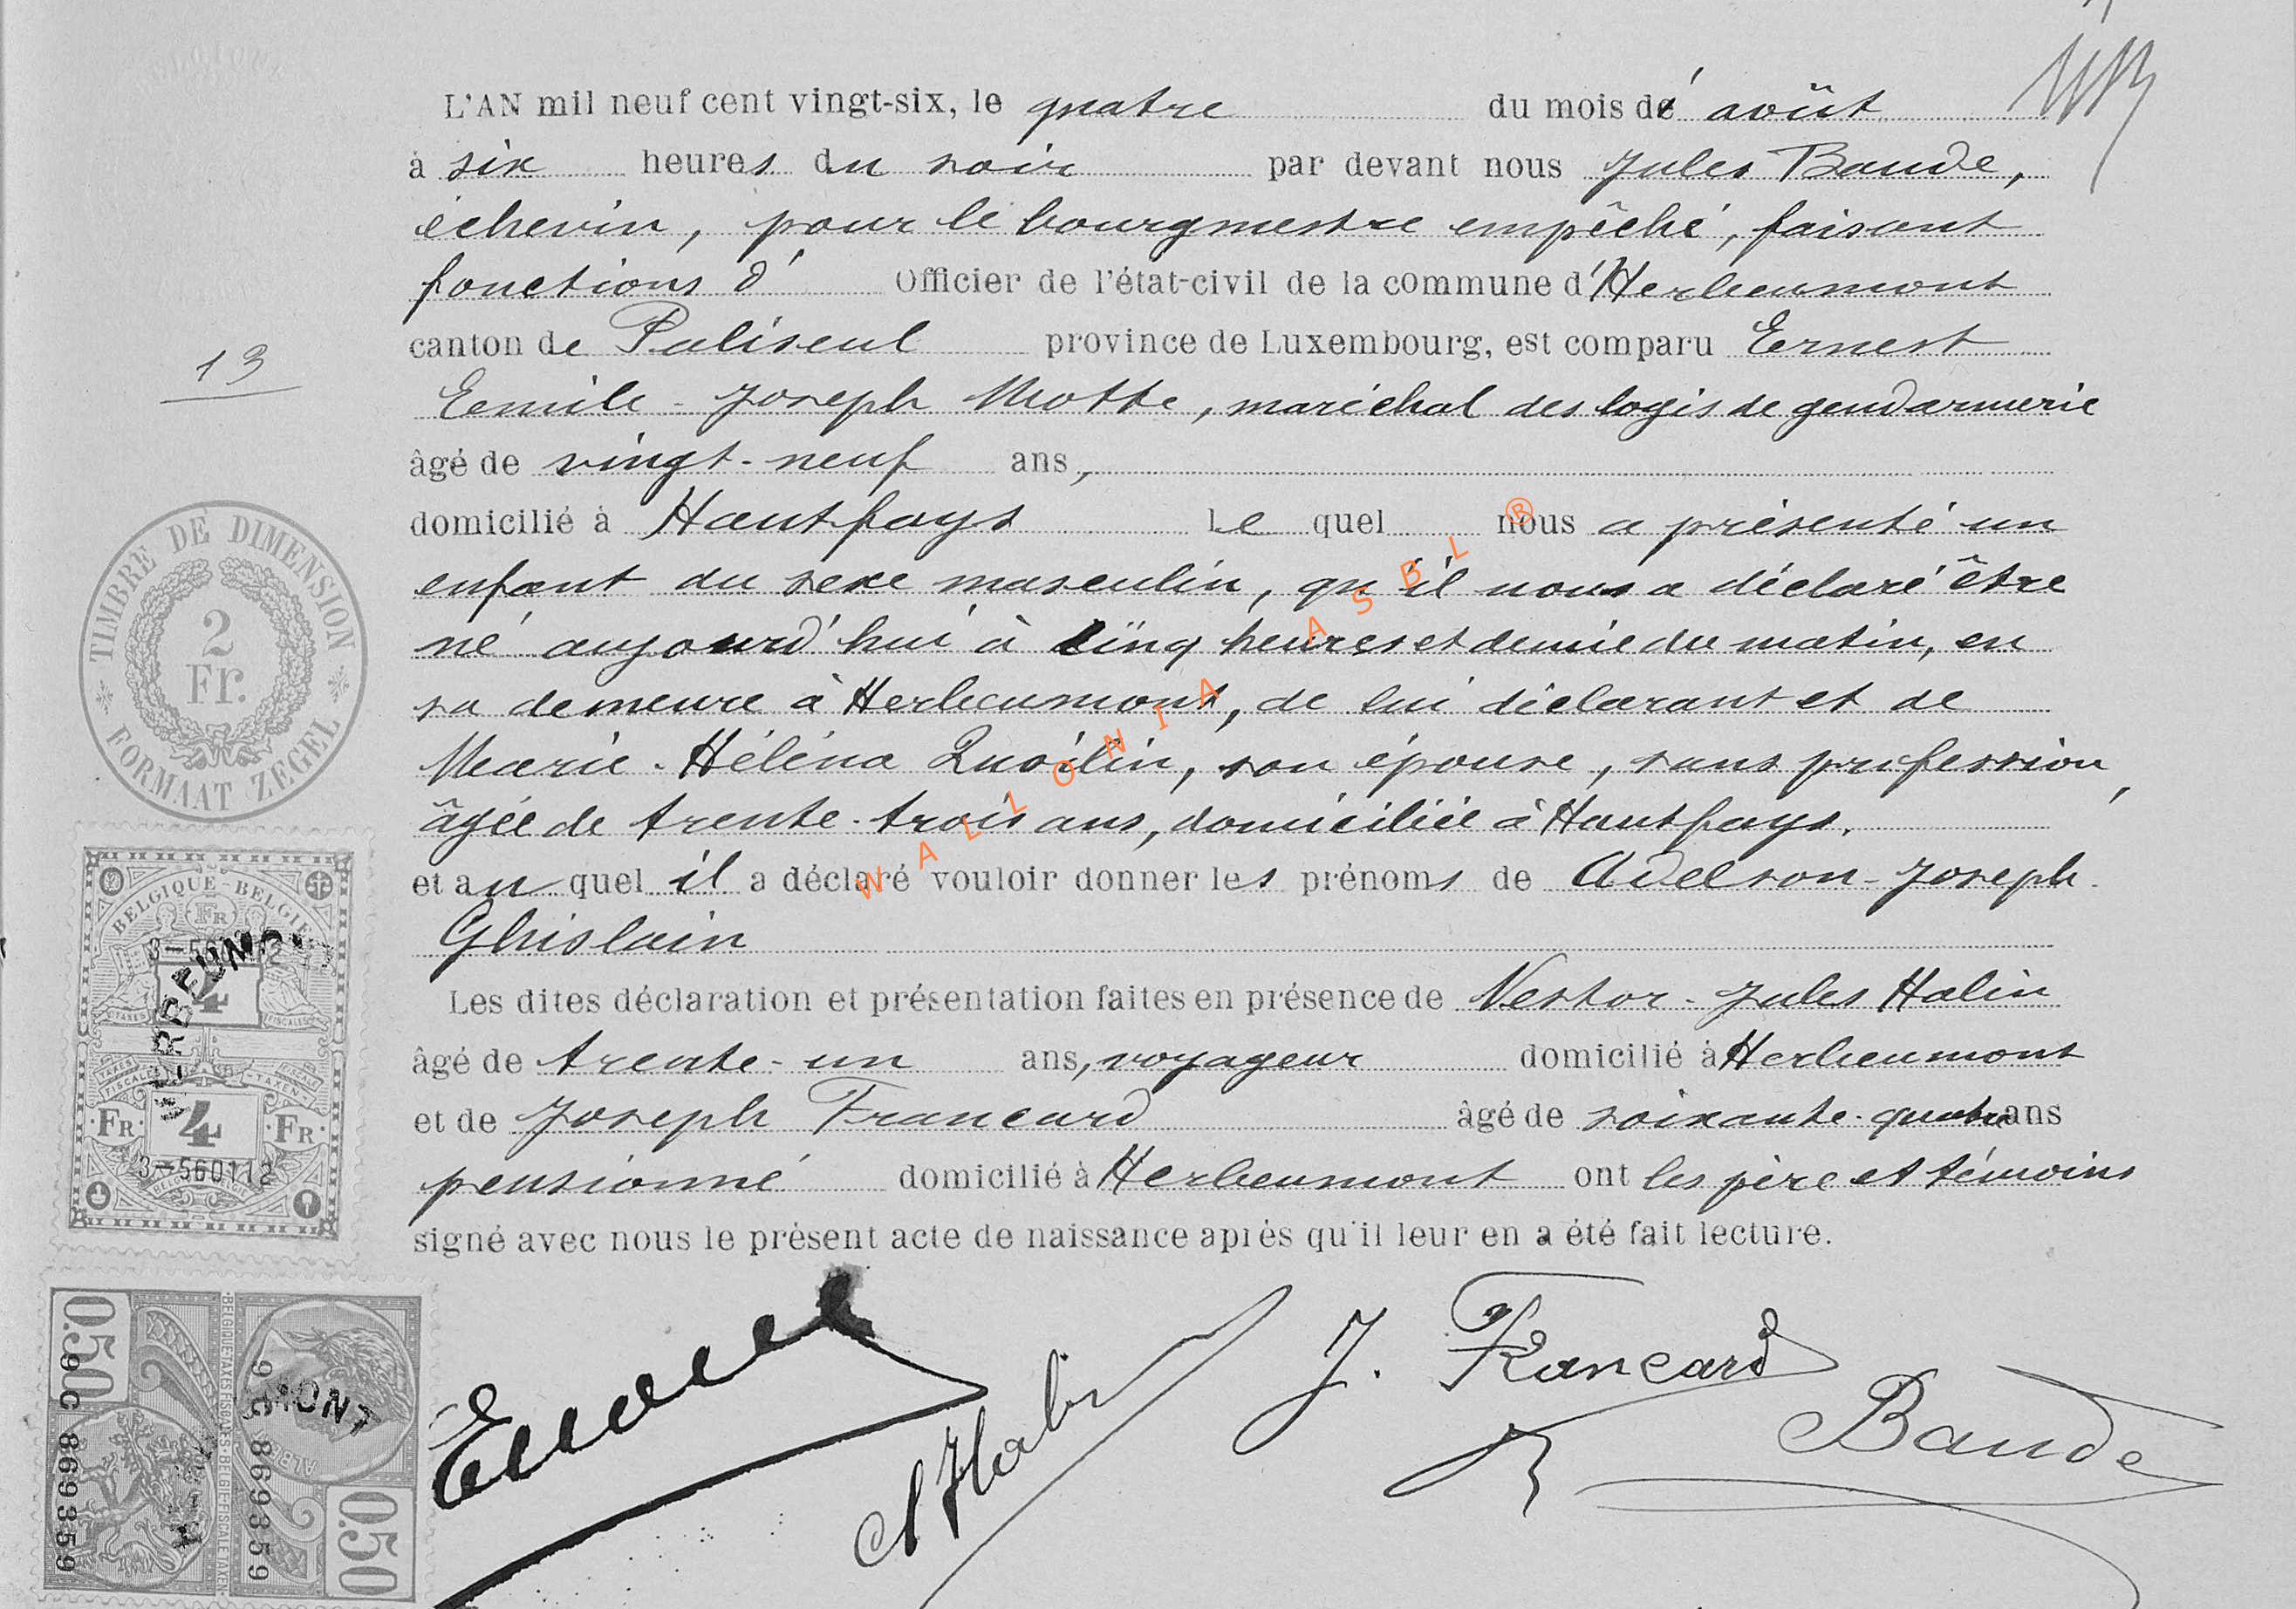 L'AN mil neuf cent vingt-six, le quatre du mois d' août
à six heures du soir par devant nous Jules Baude,
échevin, pour le bourgmestre empêché, faisant
fonctions d' Officier de l'état-civil de la commune d'Herbeumont
canton de Paliseul province de Luxembourg, est comparu Ernest
13
Emile-Joseph Motte, maréchal des logis de gendarmerie
âgé de vingt-neuf ans,
domicilié à Hautfays le quel nous a présenté un
enfant du sexe masculin, qu'il nous a déclaré être
né aujourd'hui à cinq heures et demie du matin, en
sa demeure à Herbeumont, de lui déclarant et de
Marie-Héléna Quoilin, son épouse, sans profession,
âgée de trente-trois ans, domiciliée à Hautfays.
et au quel il a déclaré vouloir donner les prénoms de Adelson-Joseph-
Ghislain
Les dites déclaration et présentation faites en présence de Nestor-Jules Halin
âgé de trente-un ans, voyageur domicilié à Herbeumont
et de Joseph Francard âgé de soixante-quatre ans
pensionné domicilié à Herbeumont ont les père et témoins
signé avec nous le présent acte de naissance après qu'il leur en a été fait lecture.
J. Francard
Baude
WALLONIA ASBL ®
TIMBRE DE DIMENSION
2
Fr.
FORMAAT ZEGEL
BELGIQUE-BELGIË
FR
3-560112
4
TAXES FISCALES
HERBEUMONT
TAXES FISCALES TAXEN
FR 4 FR
3-560112
0.50
9C 869359
9C 869359
MONT
0.50